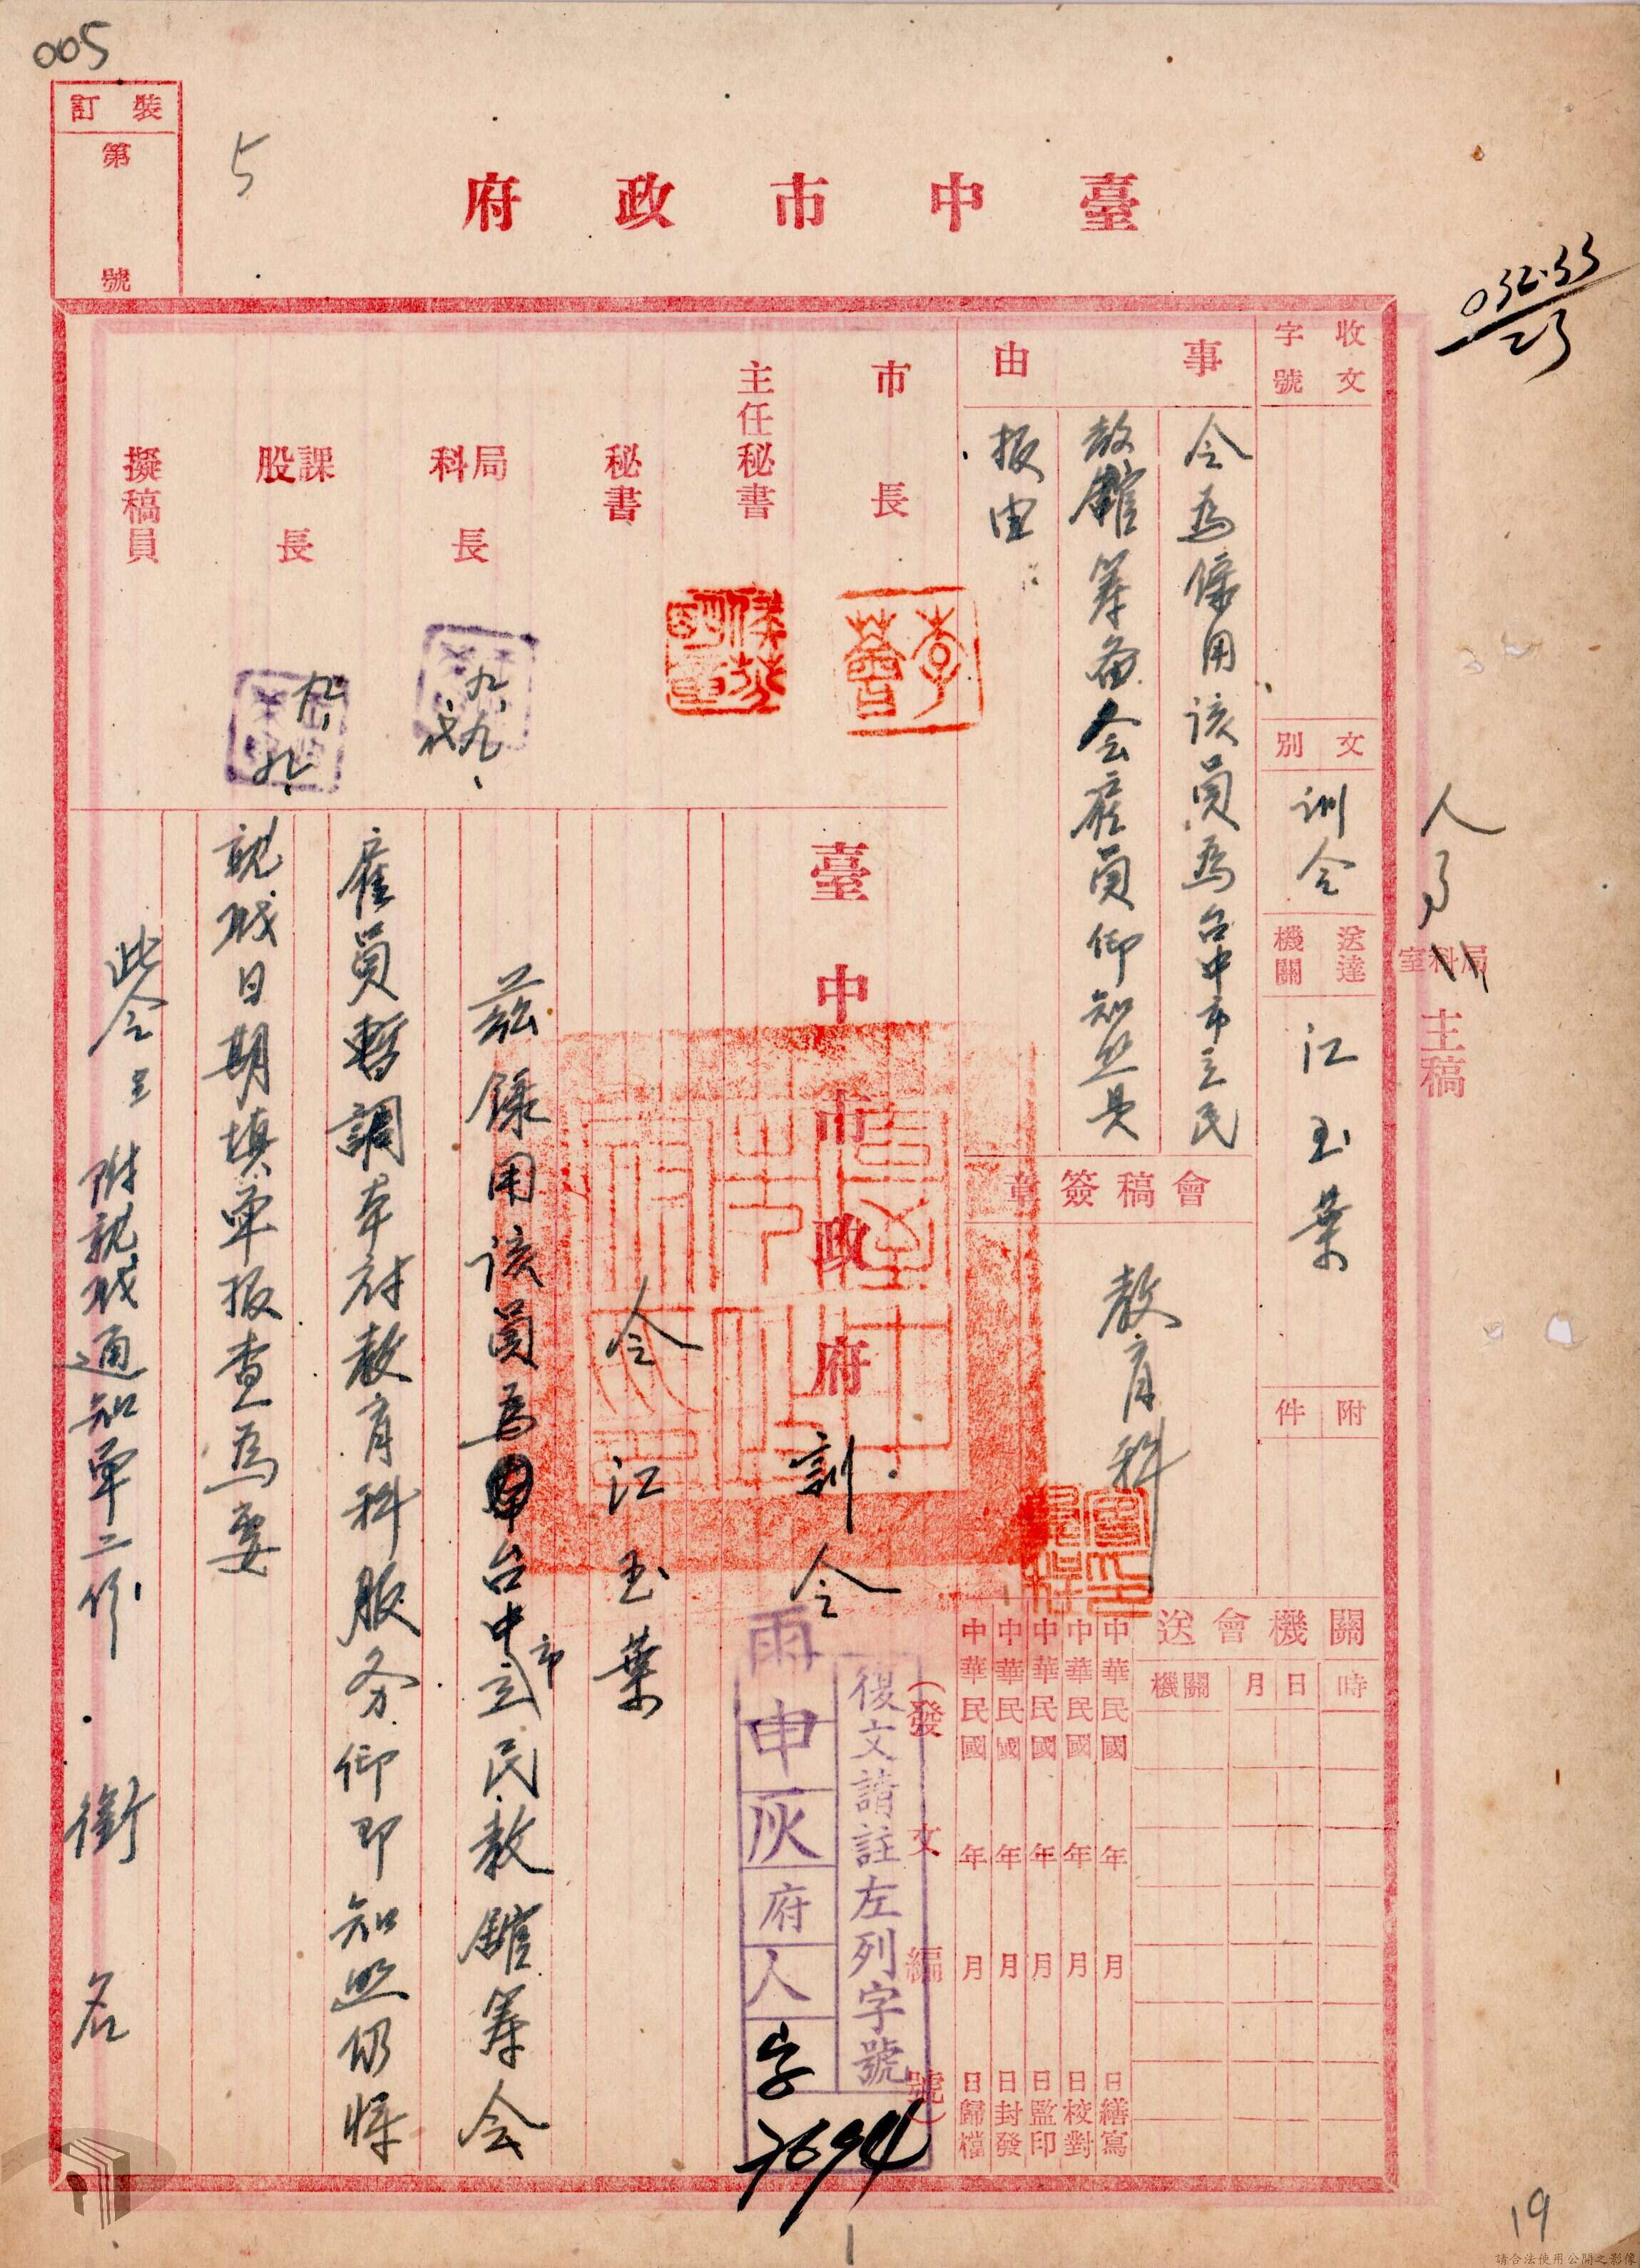 005
裝訂
第
號
5
臺中市政府
032.33
23
收文
字號
文別
訓令
送達
機關
江玉葉
附件
人事
局科室
主稿
事由
令為僱用該員為台中市立民
教館筹备会雇員仰知照具
报由
市長
主任秘書
秘書
局科長
課股長
擬稿員
九、九、
九、九、
會稿簽章
教育科
關機會送
機關
月日
時
中華民國 年 月 日繕寫
中華民國 年 月 日校對
中華民國 年 月 日監印
中華民國 年 月 日封發
中華民國 年 月 日歸檔
(發文編號)
復文請註左列字號
雨申灰府人字
7694
臺中市政府訓令
令江玉葉
茲僱用該員為台中市立民教館筹会
雇員暫調本府教育科服务仰即知照仍将
就职日期填单报查為要
此令
附就职通知单二份
銜名
19
請合法使用公開之影像